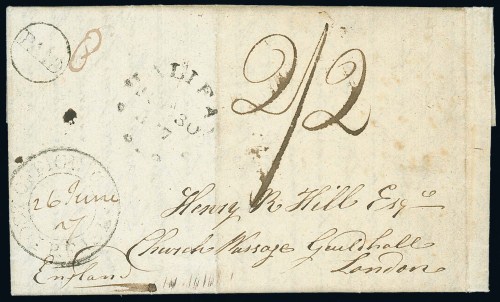 PAID
HALIFA
30
7
2/2
26 June
Henry R. Hill Esqre
Church Passage Guildhall
London
England